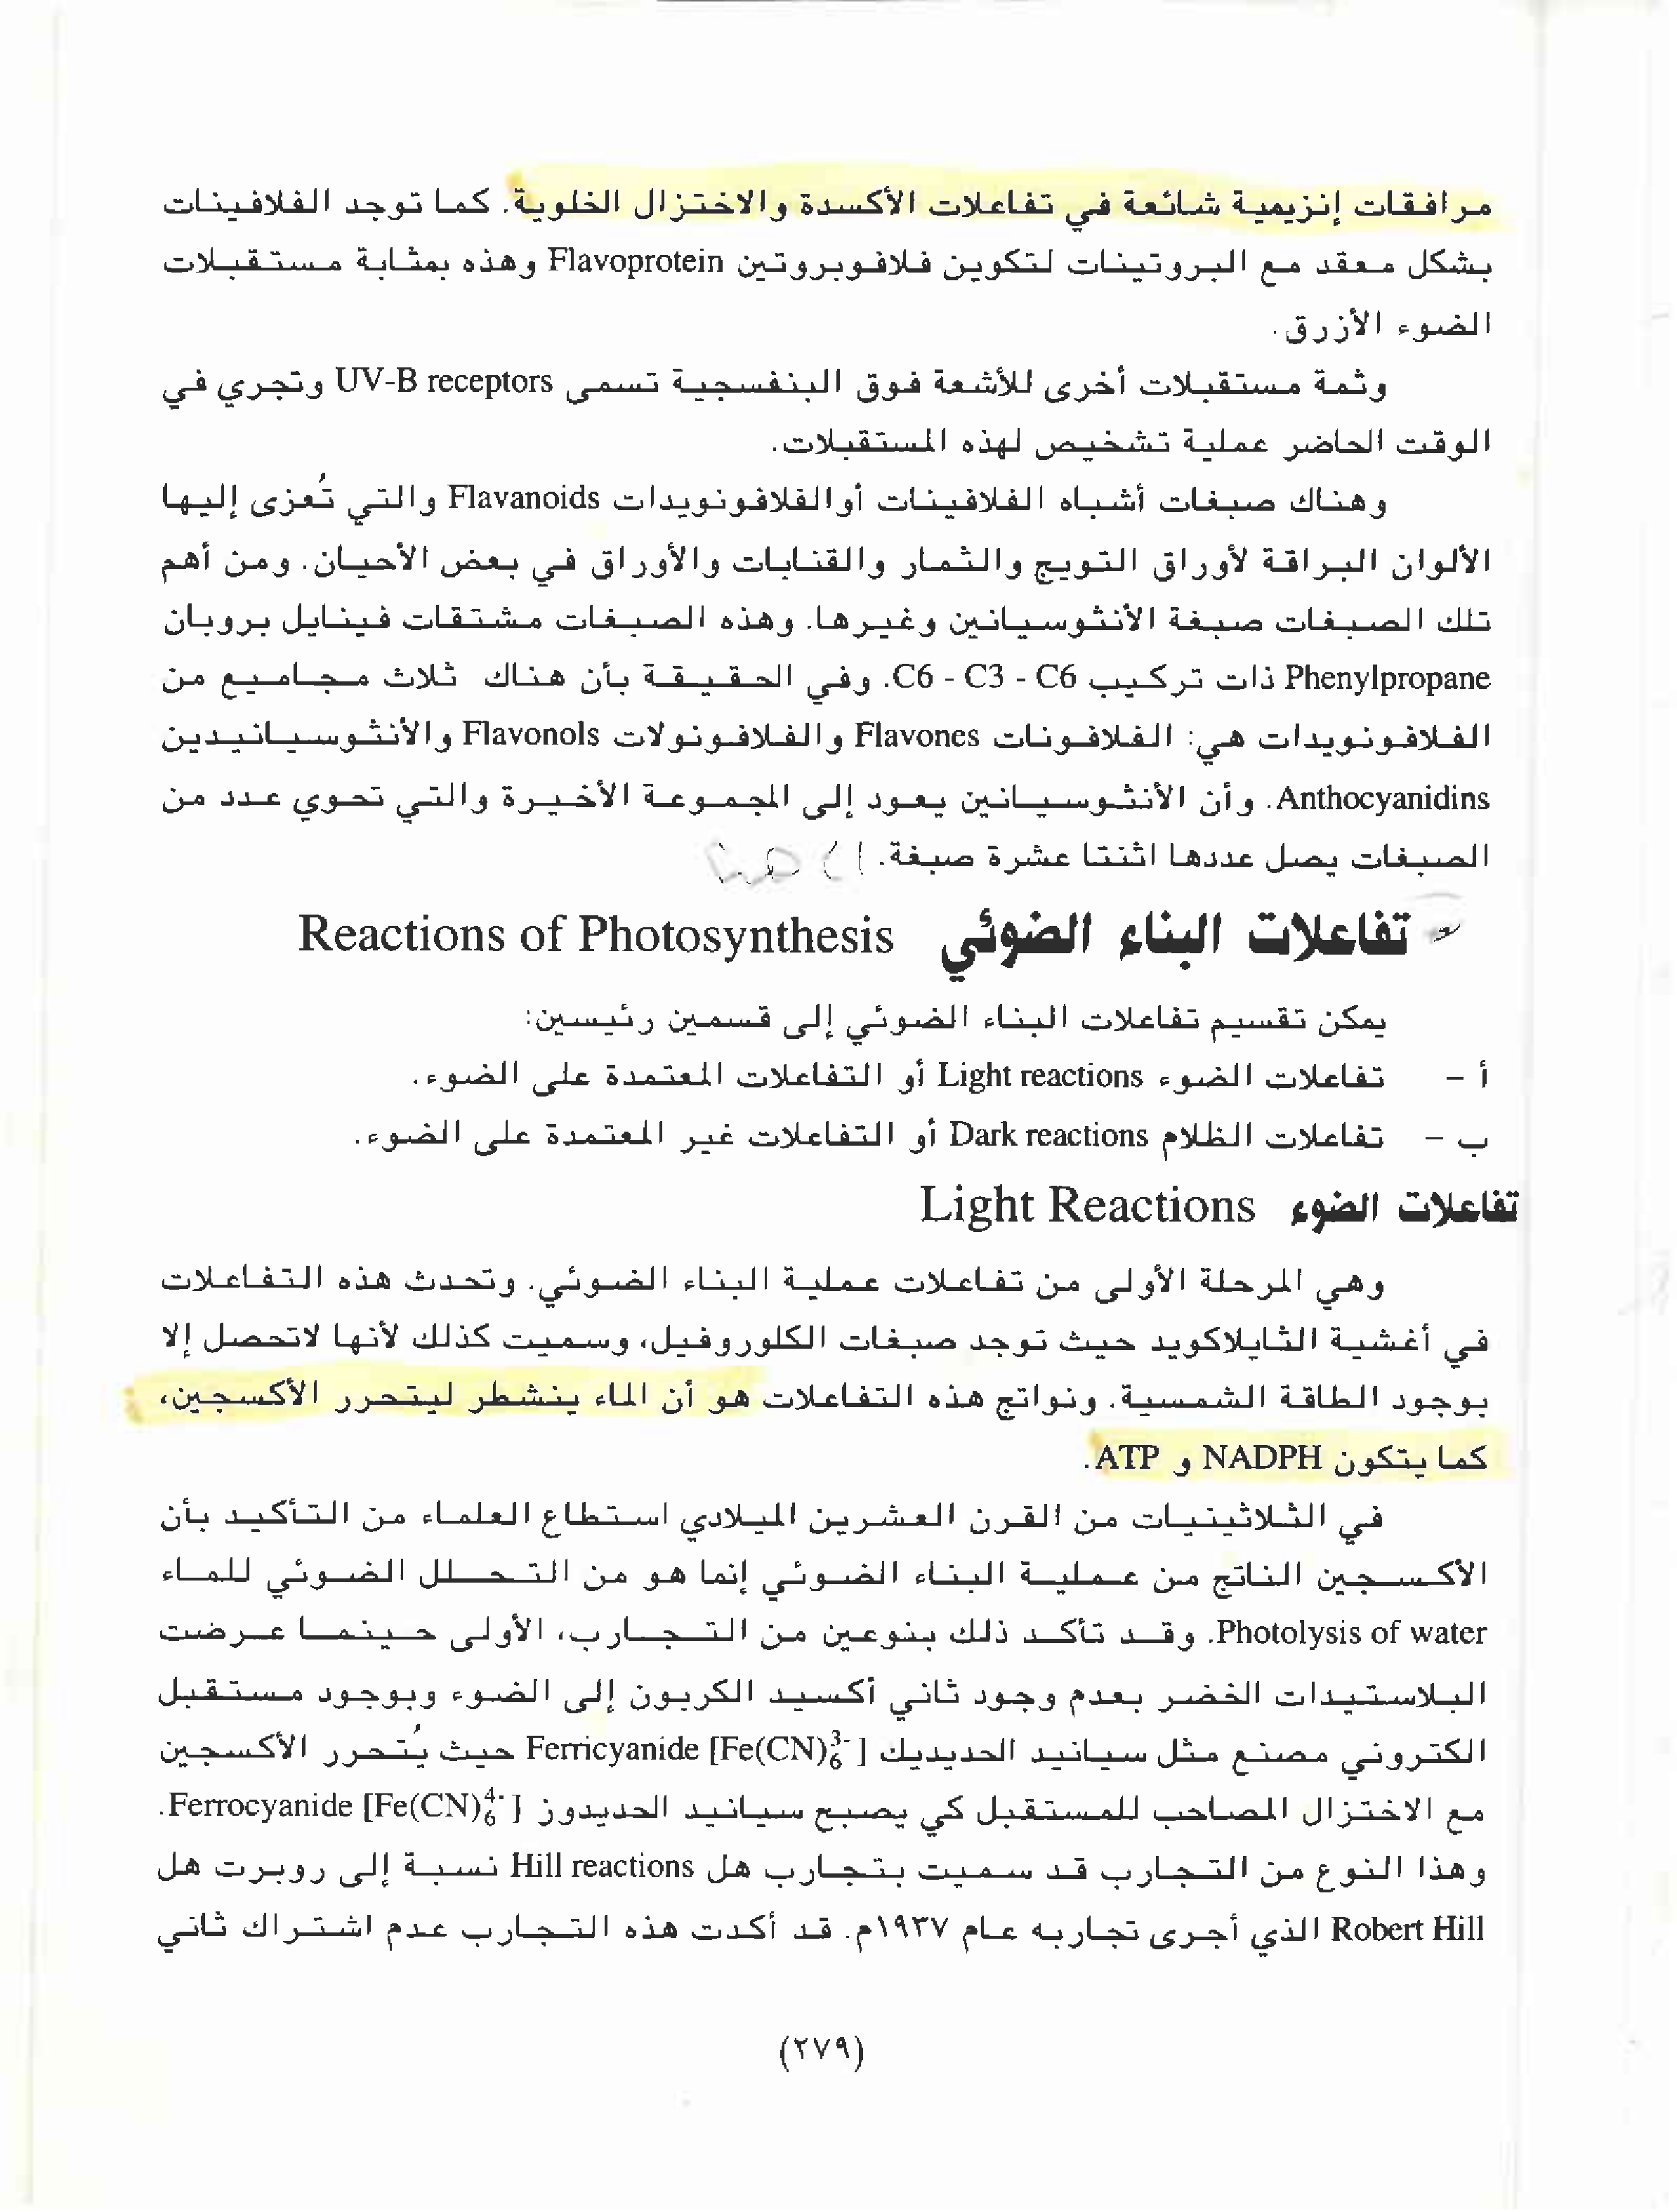 مرافقات إنزيمية شائعة في تفاعلات الأكسدة والاختزال الخلوية. كما توجد الفلافينات
بشكل معقد مع البروتينات لتكوين فلافوبروتين Flavoprotein وهذه بمثابة مستقبلات
الضوء الأزرق.
وثمة مستقبلات أخرى للأشعة فوق البنفسجية تسمى UV-B receptors وتجري في
الوقت الحاضر عملية تشخيص لهذه المستقبلات.
وهناك صبغات أشباه الفلافينات أوالفلافونويدات Flavanoids والتي تُعزى إليها
الألوان البراقة لأوراق التويج والثمار والقنابات والأوراق في بعض الأحيان. ومن أهم
تلك الصبغات صبغة الأنثوسيانين وغيرها. وهذه الصبغات مشتقات فينايل بروبان
Phenylpropane ذات تركيب C6 - C3 - C6. وفي الحقيقة بأن هناك ثلاث مجاميع من
الفلافونويدات هي: الفلافونات Flavones والفلافونولات Flavonols والأنثوسيانيدين
Anthocyanidins. وأن الأنثوسيانين يعود إلى المجموعة الأخيرة والتي تحوي عدد من
الصبغات يصل عددها اثنتا عشرة صبغة.
تفاعلات البناء الضوئي Reactions of Photosynthesis
يمكن تقسيم تفاعلات البناء الضوئي إلى قسمين رئيسين:
أ - تفاعلات الضوء Light reactions أو التفاعلات المعتمدة على الضوء.
ب - تفاعلات الظلام Dark reactions أو التفاعلات غير المعتمدة على الضوء.
تفاعلات الضوء Light Reactions
وهي المرحلة الأولى من تفاعلات عملية البناء الضوئي. وتحدث هذه التفاعلات
في أغشية الثايلاكويد حيث توجد صبغات الكلوروفيل، وسميت كذلك لأنها لاتحصل إلا
بوجود الطاقة الشمسية. ونواتج هذه التفاعلات هو أن الماء ينشطر ليتحرر الأكسجين،
كما يتكون NADPH و ATP.
في الثلاثينيات من القرن العشرين الميلادي استطاع العلماء من التأكيد بأن
الأكسجين الناتج من عملية البناء الضوئي إنما هو من التحلل الضوئي للماء
Photolysis of water. وقد تأكد ذلك بنوعين من التجارب، الأولى حينما عرضت
البلاستيدات الخضر بعدم وجود ثاني أكسيد الكربون إلى الضوء وبوجود مستقبل
الكتروني مصنع مثل سيانيد الحديديك Ferricyanide [Fe(CN)₆³⁻] حيث يُتحرر الأكسجين
مع الاختزال المصاحب للمستقبل كي يصبح سيانيد الحديدوز Ferrocyanide [Fe(CN)₆⁴⁻].
وهذا النوع من التجارب قد سميت بتجارب هل Hill reactions نسبة إلى روبرت هل
Robert Hill الذي أجرى تجاربه عام ١٩٣٧م. قد أكدت هذه التجارب عدم اشتراك ثاني
(٢٧٩)